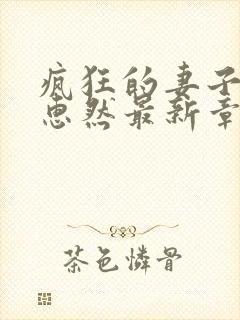 疯狂的妻子
惠然最新章
茶色憐骨